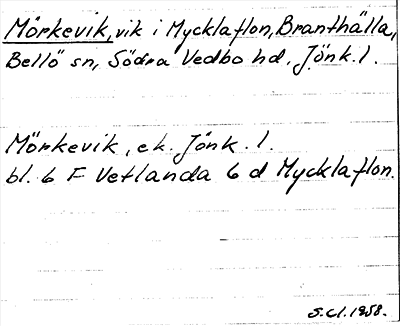 Mörkevik, vik i Mycklaflon, Branthälla,
Bellö sn, Södra Vedbo hd. Jönk. l.
Mörkevik, ek. Jönk. l.
bl. 6 F Vetlanda 6 d Mycklaflon.
S.Cl. 1958.